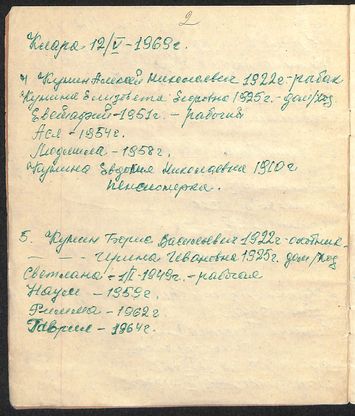 2
Клара 12/V-1969г.
4 Кулин Алексей Николаевич 1922г-рабоч
Кулина Елизовета Егоровна 1925г-дом/хоз
Евстафий-1951г. - рабочий
Ася - 1954г.
Людмила. - 1958г.
Кулина Евдокия Николаевна 1910г
пенсионерка.
5. Кулин Борис Васильевич 1922г-охотник
— — Ирина Ивановна 1925г. дом/хоз
Светлана - 1949г. - рабочая
Наум - 1959г.
Римма - 1962г
Гаврил - 1964г.